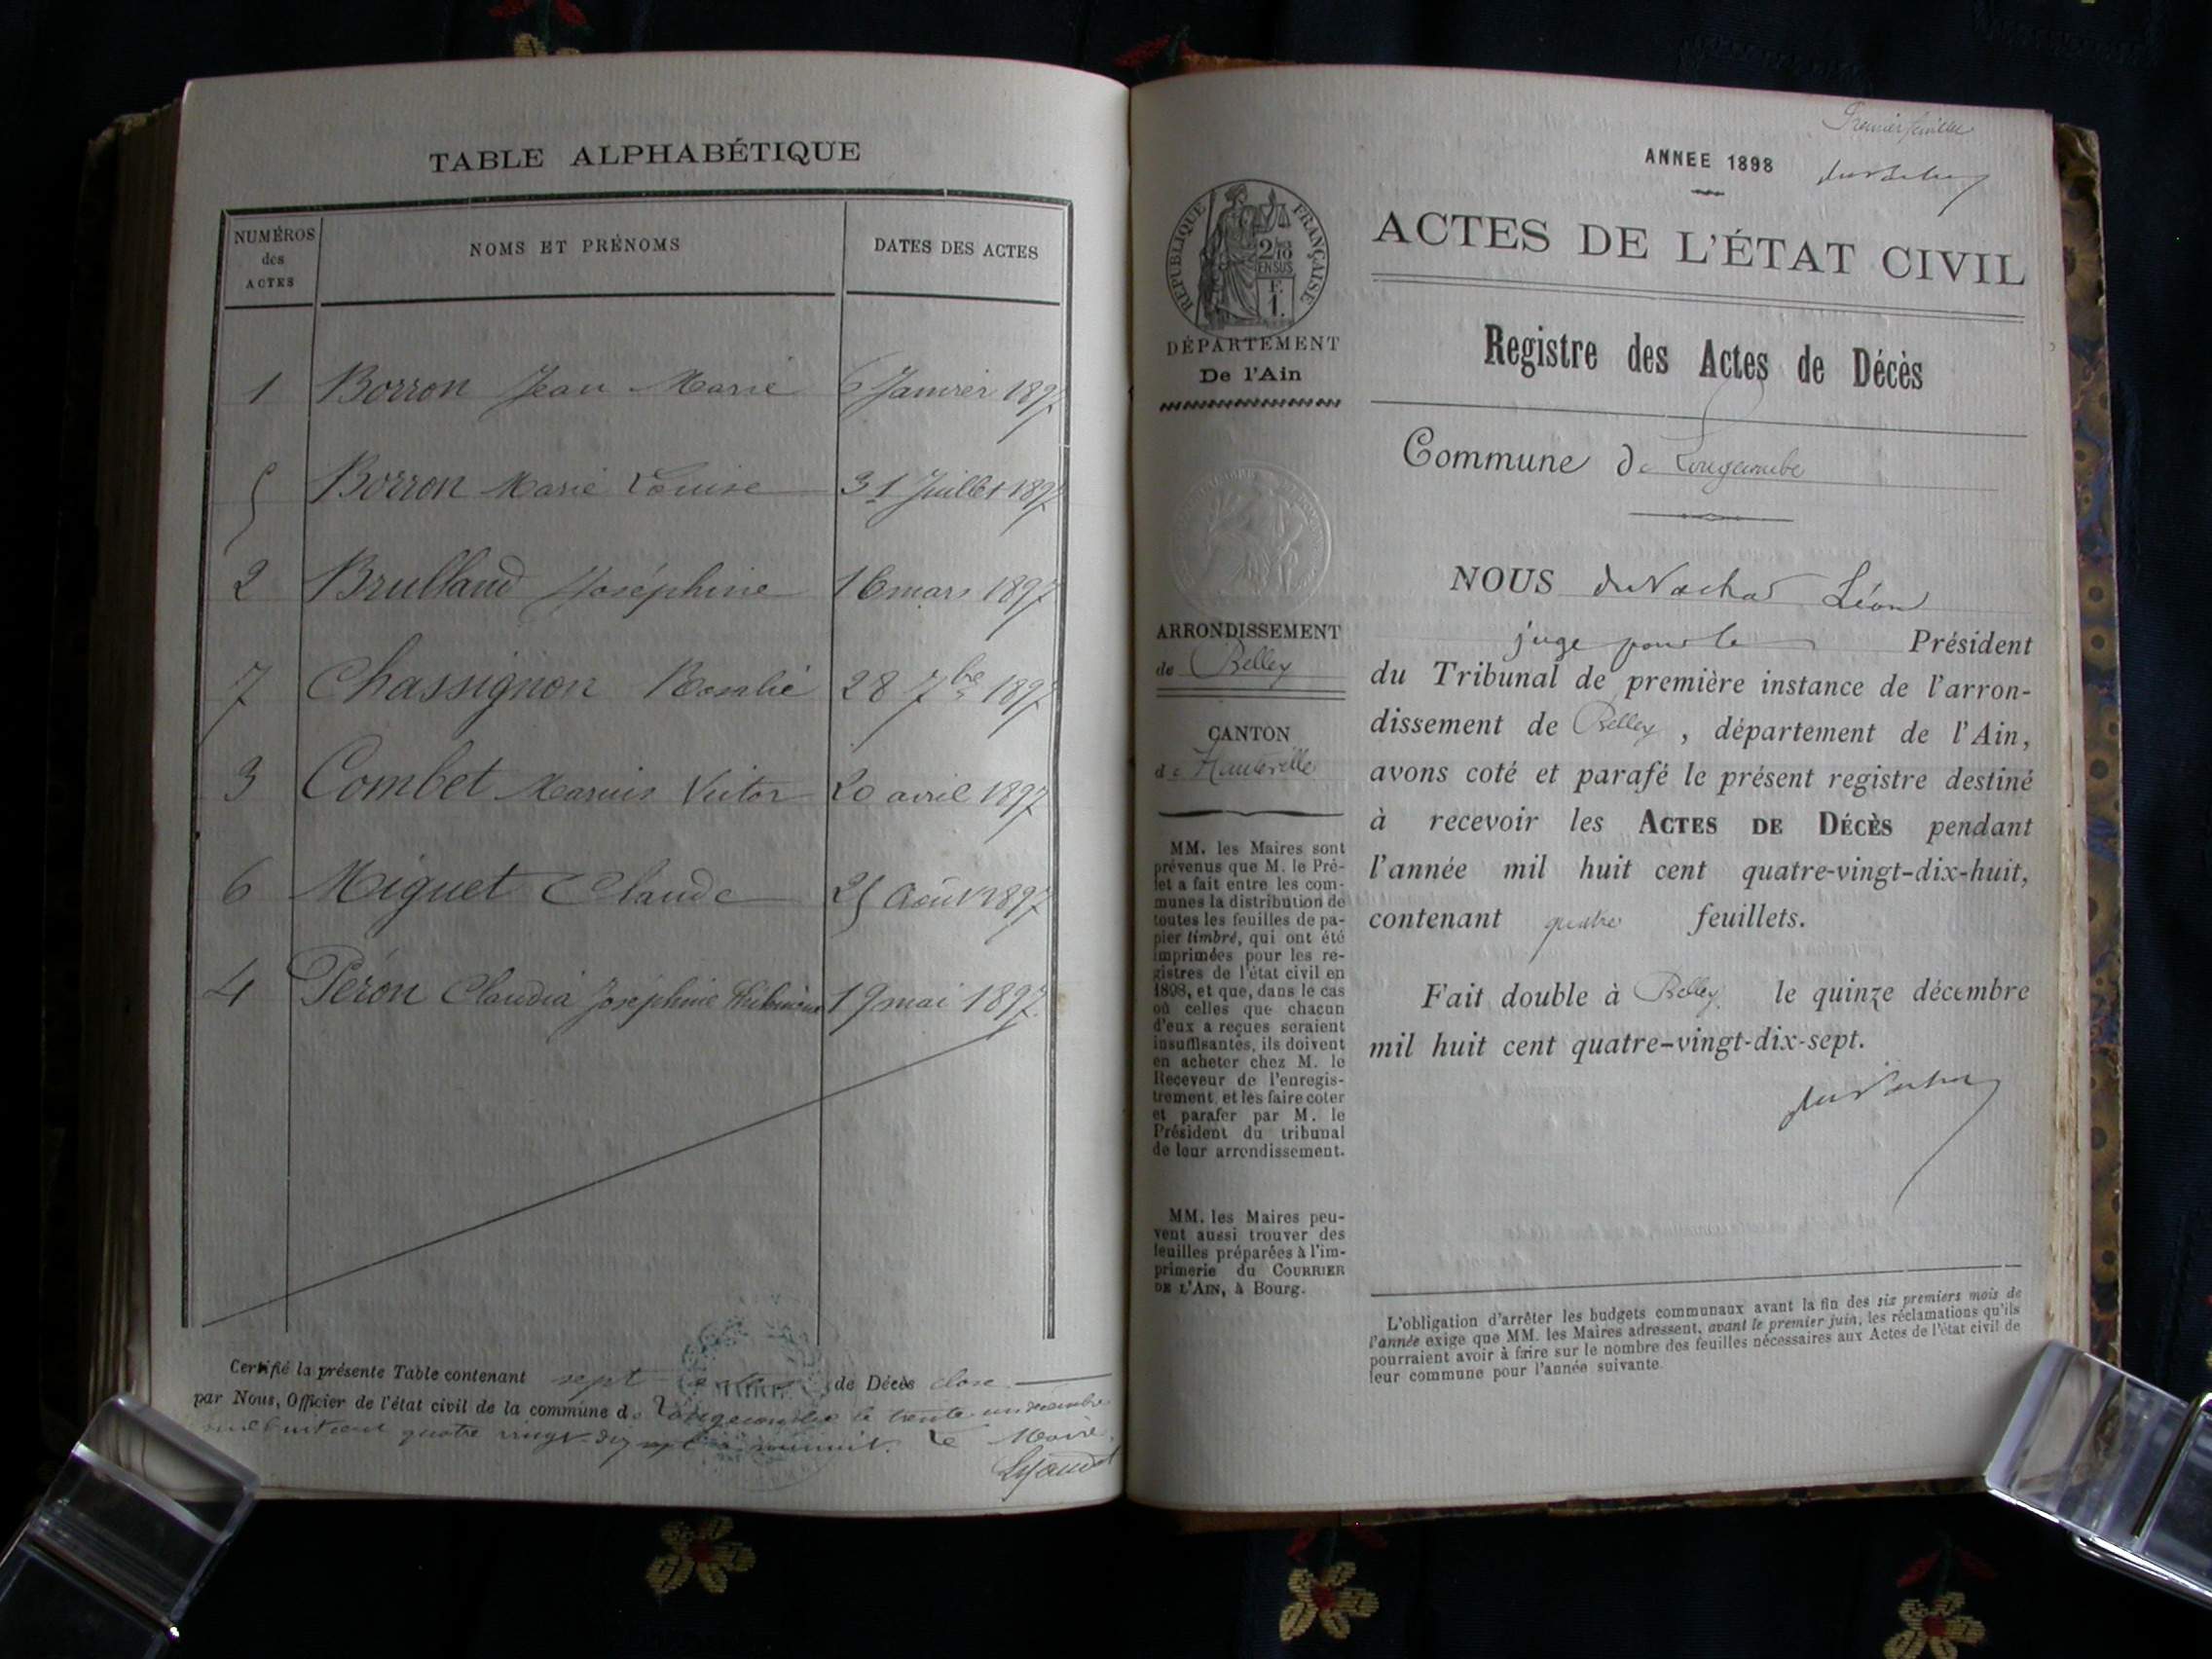 TABLE ALPHABÉTIQUE
NUMÉROS
des
ACTES
NOMS ET PRÉNOMS
DATES DES ACTES
1 Borron Jean Marie 6 Janvier 1897
5 Borron Marie Louise 31 Juillet 1897
2 Brulland Joséphine 16 mars 1897
7 Chassignon Rosalie 28 7bre 1897
3 Combet Marius Victor 20 avril 1897
6 Miguet Claude 25 Août 1897
4 Péron Claudia Joséphine 19 mai 1897.
Certifié la présente Table contenant sept actes de Décès close
par Nous, Officier de l'état civil de la commune de Longecombe le trente un décembre
mil huit cent quatre vingt dix sept à minuit. Le Maire,
Premier feuillet
ANNEE 1898
RÉPUBLIQUE FRANÇAISE
2/10
EN SUS
F.
1.
ACTES DE L'ÉTAT CIVIL
DÉPARTEMENT
De l'Ain
Registre des Actes de Décès
Commune de Longecombe
ARRONDISSEMENT
de Belley
CANTON
de Hauteville
MM. les Maires sont
prévenus que M. le Pré-
fet a fait entre les com-
munes la distribution de
toutes les feuilles de pa-
pier timbré, qui ont été
imprimées pour les re-
gistres de l'état civil en
1898, et que, dans le cas
où celles que chacun
d'eux a reçues seraient
insuffisantes, ils doivent
en acheter chez M. le
Receveur de l'enregis-
trement, et les faire coter
et parafer par M. le
Président du tribunal
de leur arrondissement.
MM. les Maires peu-
vent aussi trouver des
feuilles préparées à l'im-
primerie du COURRIER
DE L'AIN, à Bourg.
NOUS du Vachat Léon
juge pour le Président
du Tribunal de première instance de l'arron-
dissement de Belley, département de l'Ain,
avons coté et parafé le présent registre destiné
à recevoir les ACTES DE DÉCÈS pendant
l'année mil huit cent quatre-vingt-dix-huit,
contenant quatre feuillets.
Fait double à Belley le quinze décembre
mil huit cent quatre-vingt-dix-sept.
L'obligation d'arrêter les budgets communaux avant la fin des six premiers mois de
l'année exige que MM. les Maires adressent, avant le premier juin, les réclamations qu'ils
pourraient avoir à faire sur le nombre des feuilles nécessaires aux Actes de l'état civil de
leur commune pour l'année suivante.